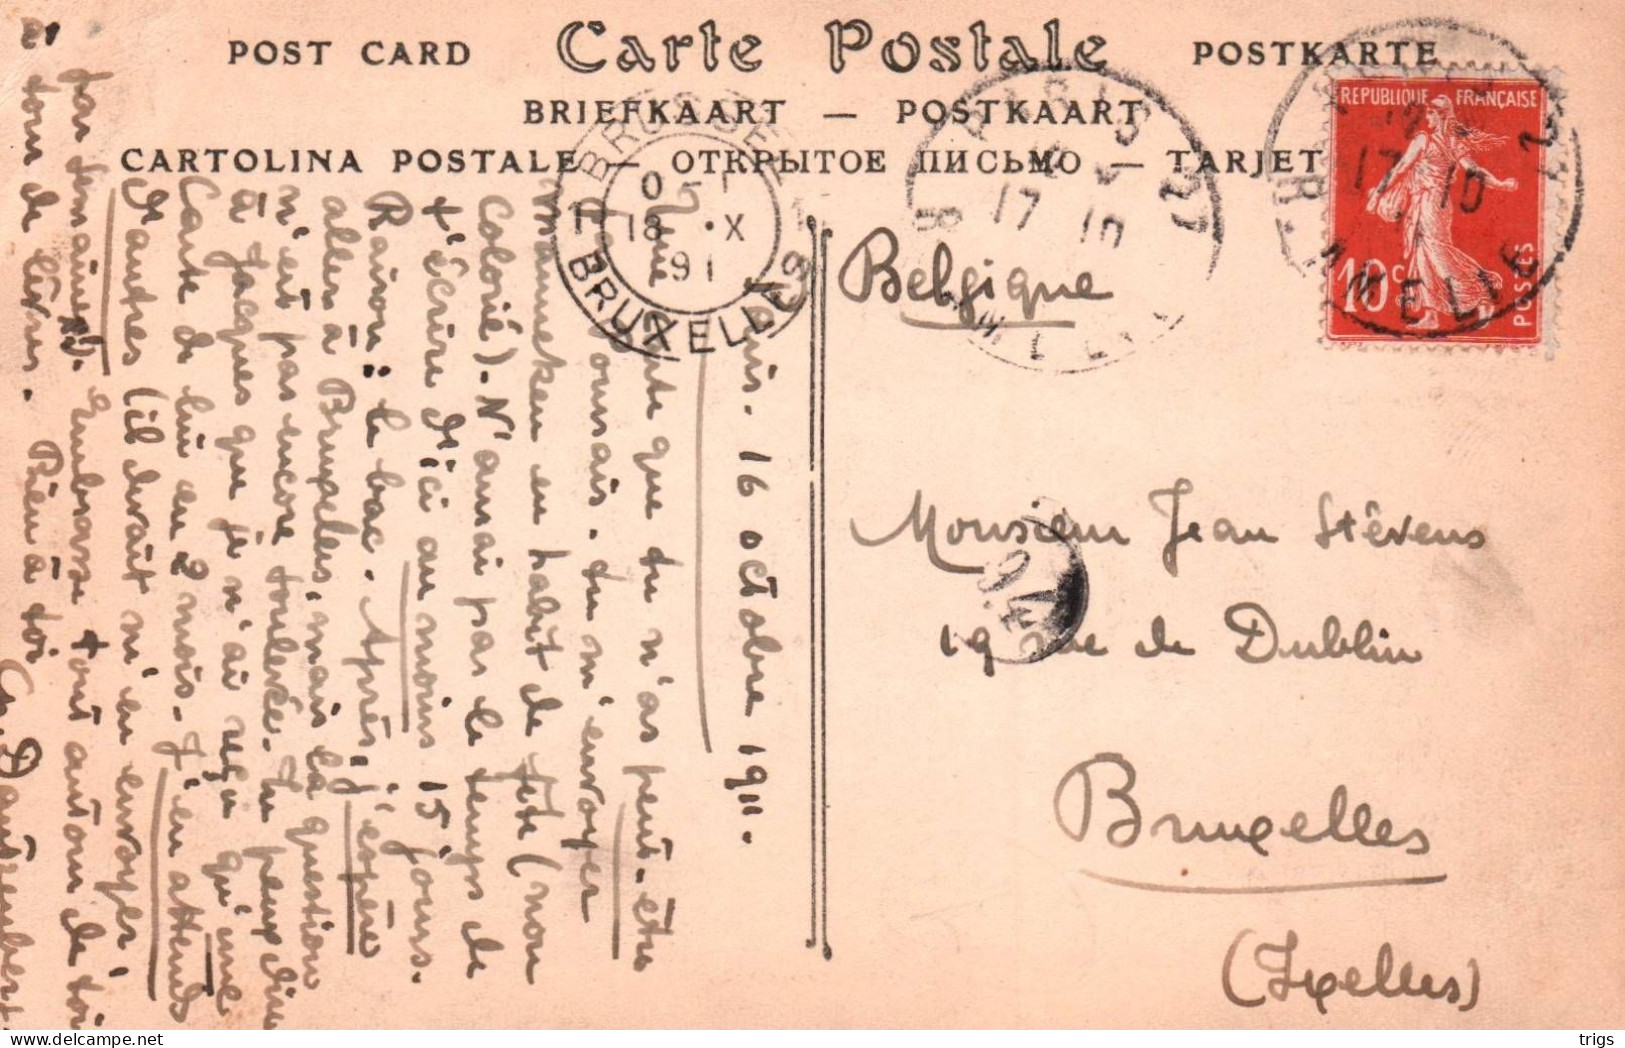 POST CARD Carte Postale POSTKARTE
BRIEFKAART — POSTKAART
CARTOLINA POSTALE — ОТКРЫТОЕ ПИСЬМО — TARJET
REPUBLIQUE FRANÇAISE
10c
POSTES
PARIS
17 10
AMELIE
BRUSSEL
18 X
191
BRUXELLES
Belgique
Monsieur Jean Stévens
19 rue de Dublin
Bruxelles
(Ixelles)
16 octobre 1911.
que tu n'as peut-être
tu m'envoyer
manneken en habit de fête (non
Colorié). N'aurai pas le temps de
t'écrire d'ici au moins 15 jours.
Raison: le bac. Après, j'espère
aller à Bruxelles, mais la question
n'est pas encore soulevée. Tu peux dire
à Jacques que je n'ai reçu qu'une
Carte de lui en 2 mois. J'en attends
d'autres (il devait m'en envoyer
par semaine). Embrasse tout autour de toi
à tour de lèvres. Bien à toi